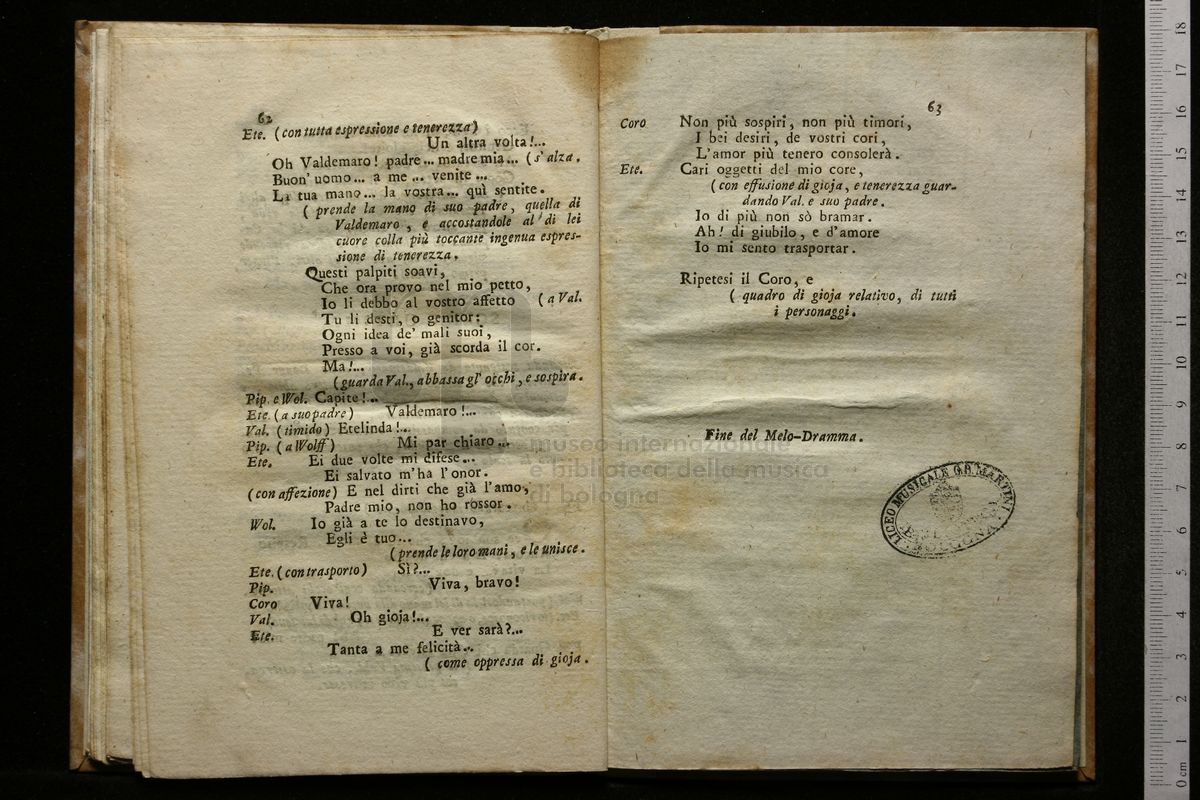 62
Ete. (con tutta espressione e tenerezza)
Un altra volta!...
Oh Valdemaro! padre... madre mia... (s'alza.
Buon' uomo... a me ... venite ...
La tua mano... la vostra... quì sentite.
( prende la mano di suo padre, quella di
Valdemaro, e accostandole al di lei
cuore colla più toccante ingenua espres-
sione di tenerezza.
Questi palpiti soavi,
Che ora provo nel mio petto,
Io li debbo al vostro affetto (a Val.
Tu li desti, o genitor:
Ogni idea de' mali suoi,
Presso a voi, già scorda il cor.
Ma!...
(guarda Val., abbassa gl' occhi, e sospira.
Pip. e Wol. Capite!...
Ete. (a suo padre) Valdemaro!...
Val. (timido) Etelinda!...
Pip. (a Wolff) Mi par chiaro...
Ete. Ei due volte mi difese...
Ei salvato m'ha l'onor.
(con affezione) E nel dirti che già l'amo,
Padre mio, non ho rossor.
Wol. Io già a te lo destinavo,
Egli è tuo...
(prende le loro mani, e le unisce.
Ete. (con trasporto) Sì?...
Pip. Viva, bravo!
Coro Viva!
Val. Oh gioja!...
Ete. E ver sarà?...
Tanta a me felicità..
( come oppressa di gioja.
63
Coro Non più sospiri, non più timori,
I bei desiri, de vostri cori,
L'amor più tenero consolerà.
Ete. Cari oggetti del mio core,
(con effusione di gioja, e tenerezza guar-
dando Val. e suo padre.
Io di più non sò bramar.
Ah! di giubilo, e d'amore
Io mi sento trasportar.
Ripetesi il Coro, e
( quadro di gioja relativo, di tutti
i personaggi.
Fine del Melo-Dramma.
LICEO MUSICALE G.B. MARTINI
BOLOGNA
museo internazionale
e biblioteca della musica
di bologna
0 cm 1 2 3 4 5 6 7 8 9 10 11 12 13 14 15 16 17 18